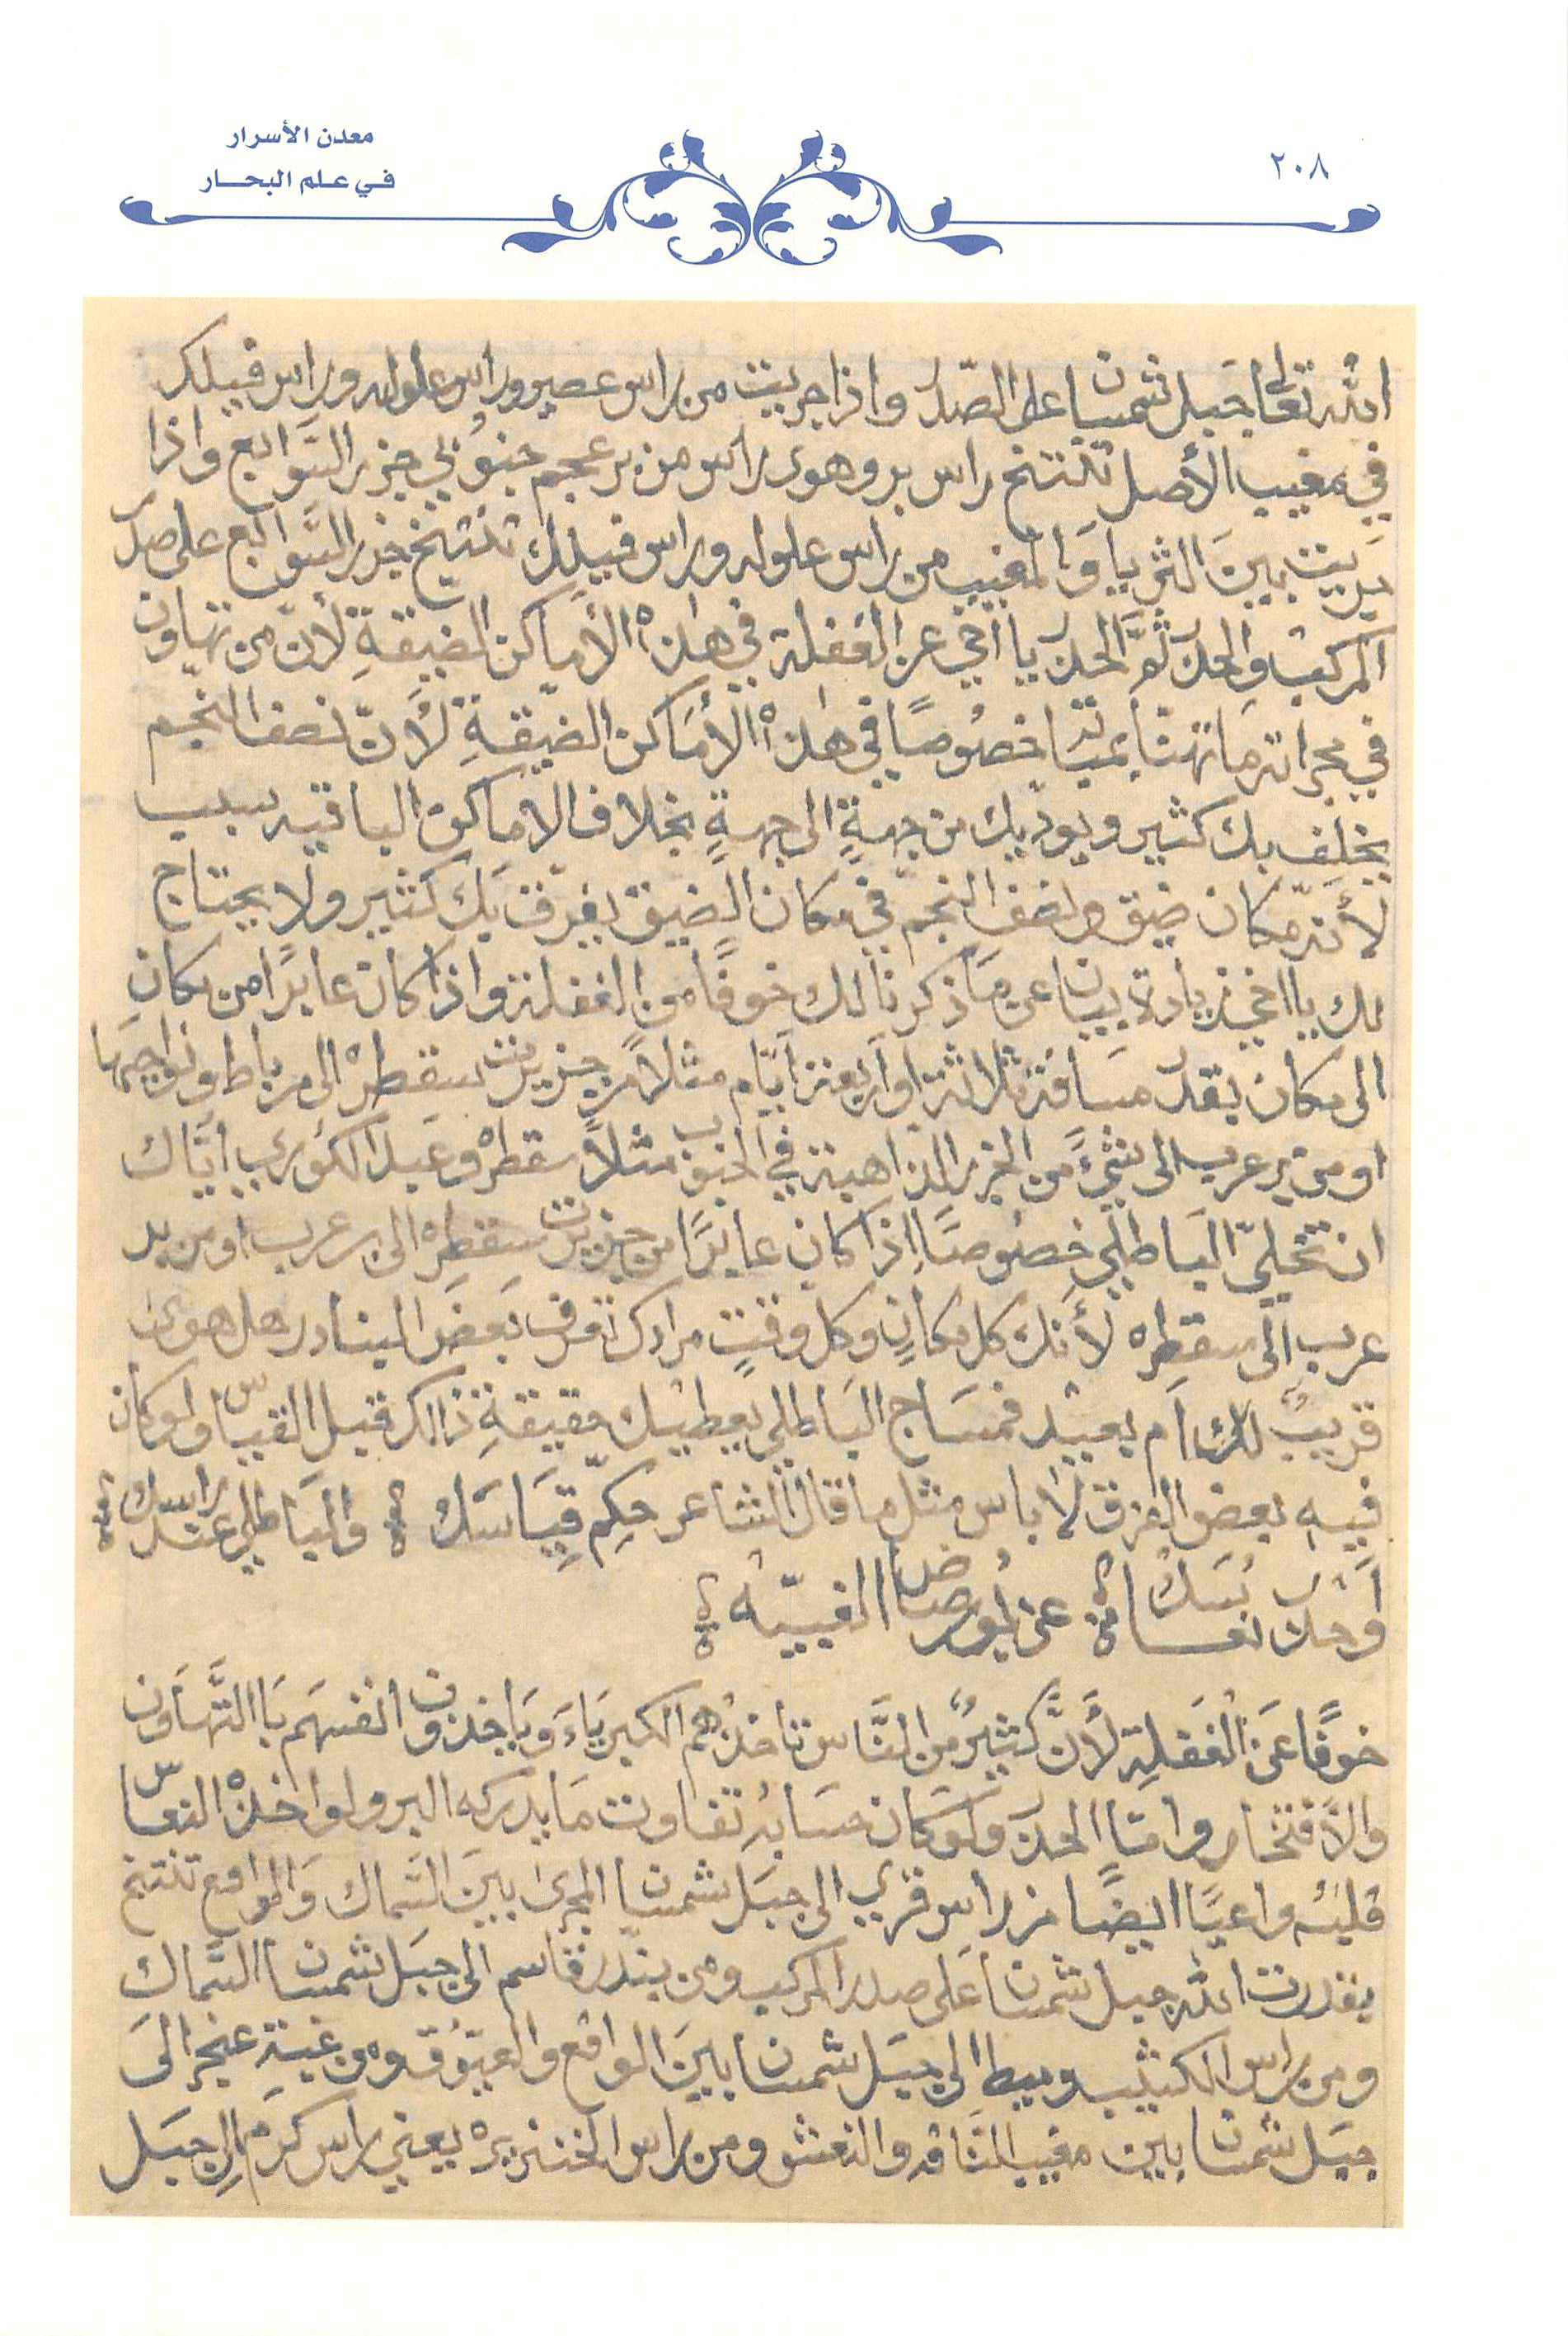 معدن الأسرار
في علم البحار
٢٠٨
الله تعالى جبل شمسان على الصدر واذا جريت من راس عصير وراس علوله وراس فيلك
في مغيب الأصل تنتخ راس بر وهوى راس من بر عجم جنوبي جزر السَّوابع واذا
جريت بينَ الثريا وَالمغيب من راس علوله وراس فيلك تنتيخ جزر السَّوابع على صدر
المركب والحذر ثمَّ الحذر يا اخي عن الغفلة في هذه الأماكن المضيقةِ لأنّ من تهاون
في مجراته ما تهنّا بمباته خصُوصًا في هذه الأمَاكن الضّيقةِ لأنّ نصف النّجم
يخلِف بك كثير ويودّيك من جهةٍ الى جهةٍ بخلاف الأماكن الباقيه سبب
لأنّه مكان ضيق ونصف النجم في مكان الضيق يفرّق بَك كثير ولا يحتاج
لك يا اخي زيادة بيان عن مَا ذكرنا لك خوفًا من الغفلة واذا كان عابرًا من مكانِ
الى مكان بقدر مسَافة ثلاثة او اربعة ايّام مثلاً من جزيرت سقطرة الى مرباط ونواجهَا
او من بر عرب الى شيءً من الجزر الذاهبة في الجنوب مثلاً سقطره وعَبد الكوري ايَّاك
ان تخلي البَاطلي خصُوصًا إذا كان عابرًا من جزيرت سقطِره الى بر عرب او من بر
عرب الى سقطِره لأنك كل مكانٍ وكل وقتٍ مرادك تعرف بَعضَ البنادر هل هوى
قريبٌ لك ام بعيد فمسَاج البَاطلي يعطيك حقيقةِ ذالك قبل القياس ولو كان
فيهِ بعض الفرق لا باس مثل ما قال الشاعر حكِمّ قِيَاسَك والبَاطلي عند راسك
أوحذر نعاسك عن لمورضا الغبيّه
خوفًا عَنْ الغَفلةِ لأنَّ كثيرٌ من النَّاس تاخذهم الكبريَاءَ وَياخذون انفسهَم بَا التَّهاون
والأفتخار وامّا الحذر وَلوكان حسَابهُ تفاوت مَا يدركه البر ولو اخذه النعاس
قلبُه واعيًا ايضًا من راس قري الى جبَل شمسان المجرى بينَ السَّماك وَالواقع تنتخ
بقدرت الله جبل شمسان عَلى صدر المركب ومن بندر قاسم الى جبَل شمسان السَّماك
ومن راس الكثيب وبيطا الى جبَل شمسان بينَ الواقع والعيّوق ومن غبة عنجر الىَ
جبَل شمسان بين مغيب النّاقه والنعش ومن راس الخنزيره يعني راس كرَم الى جبَل